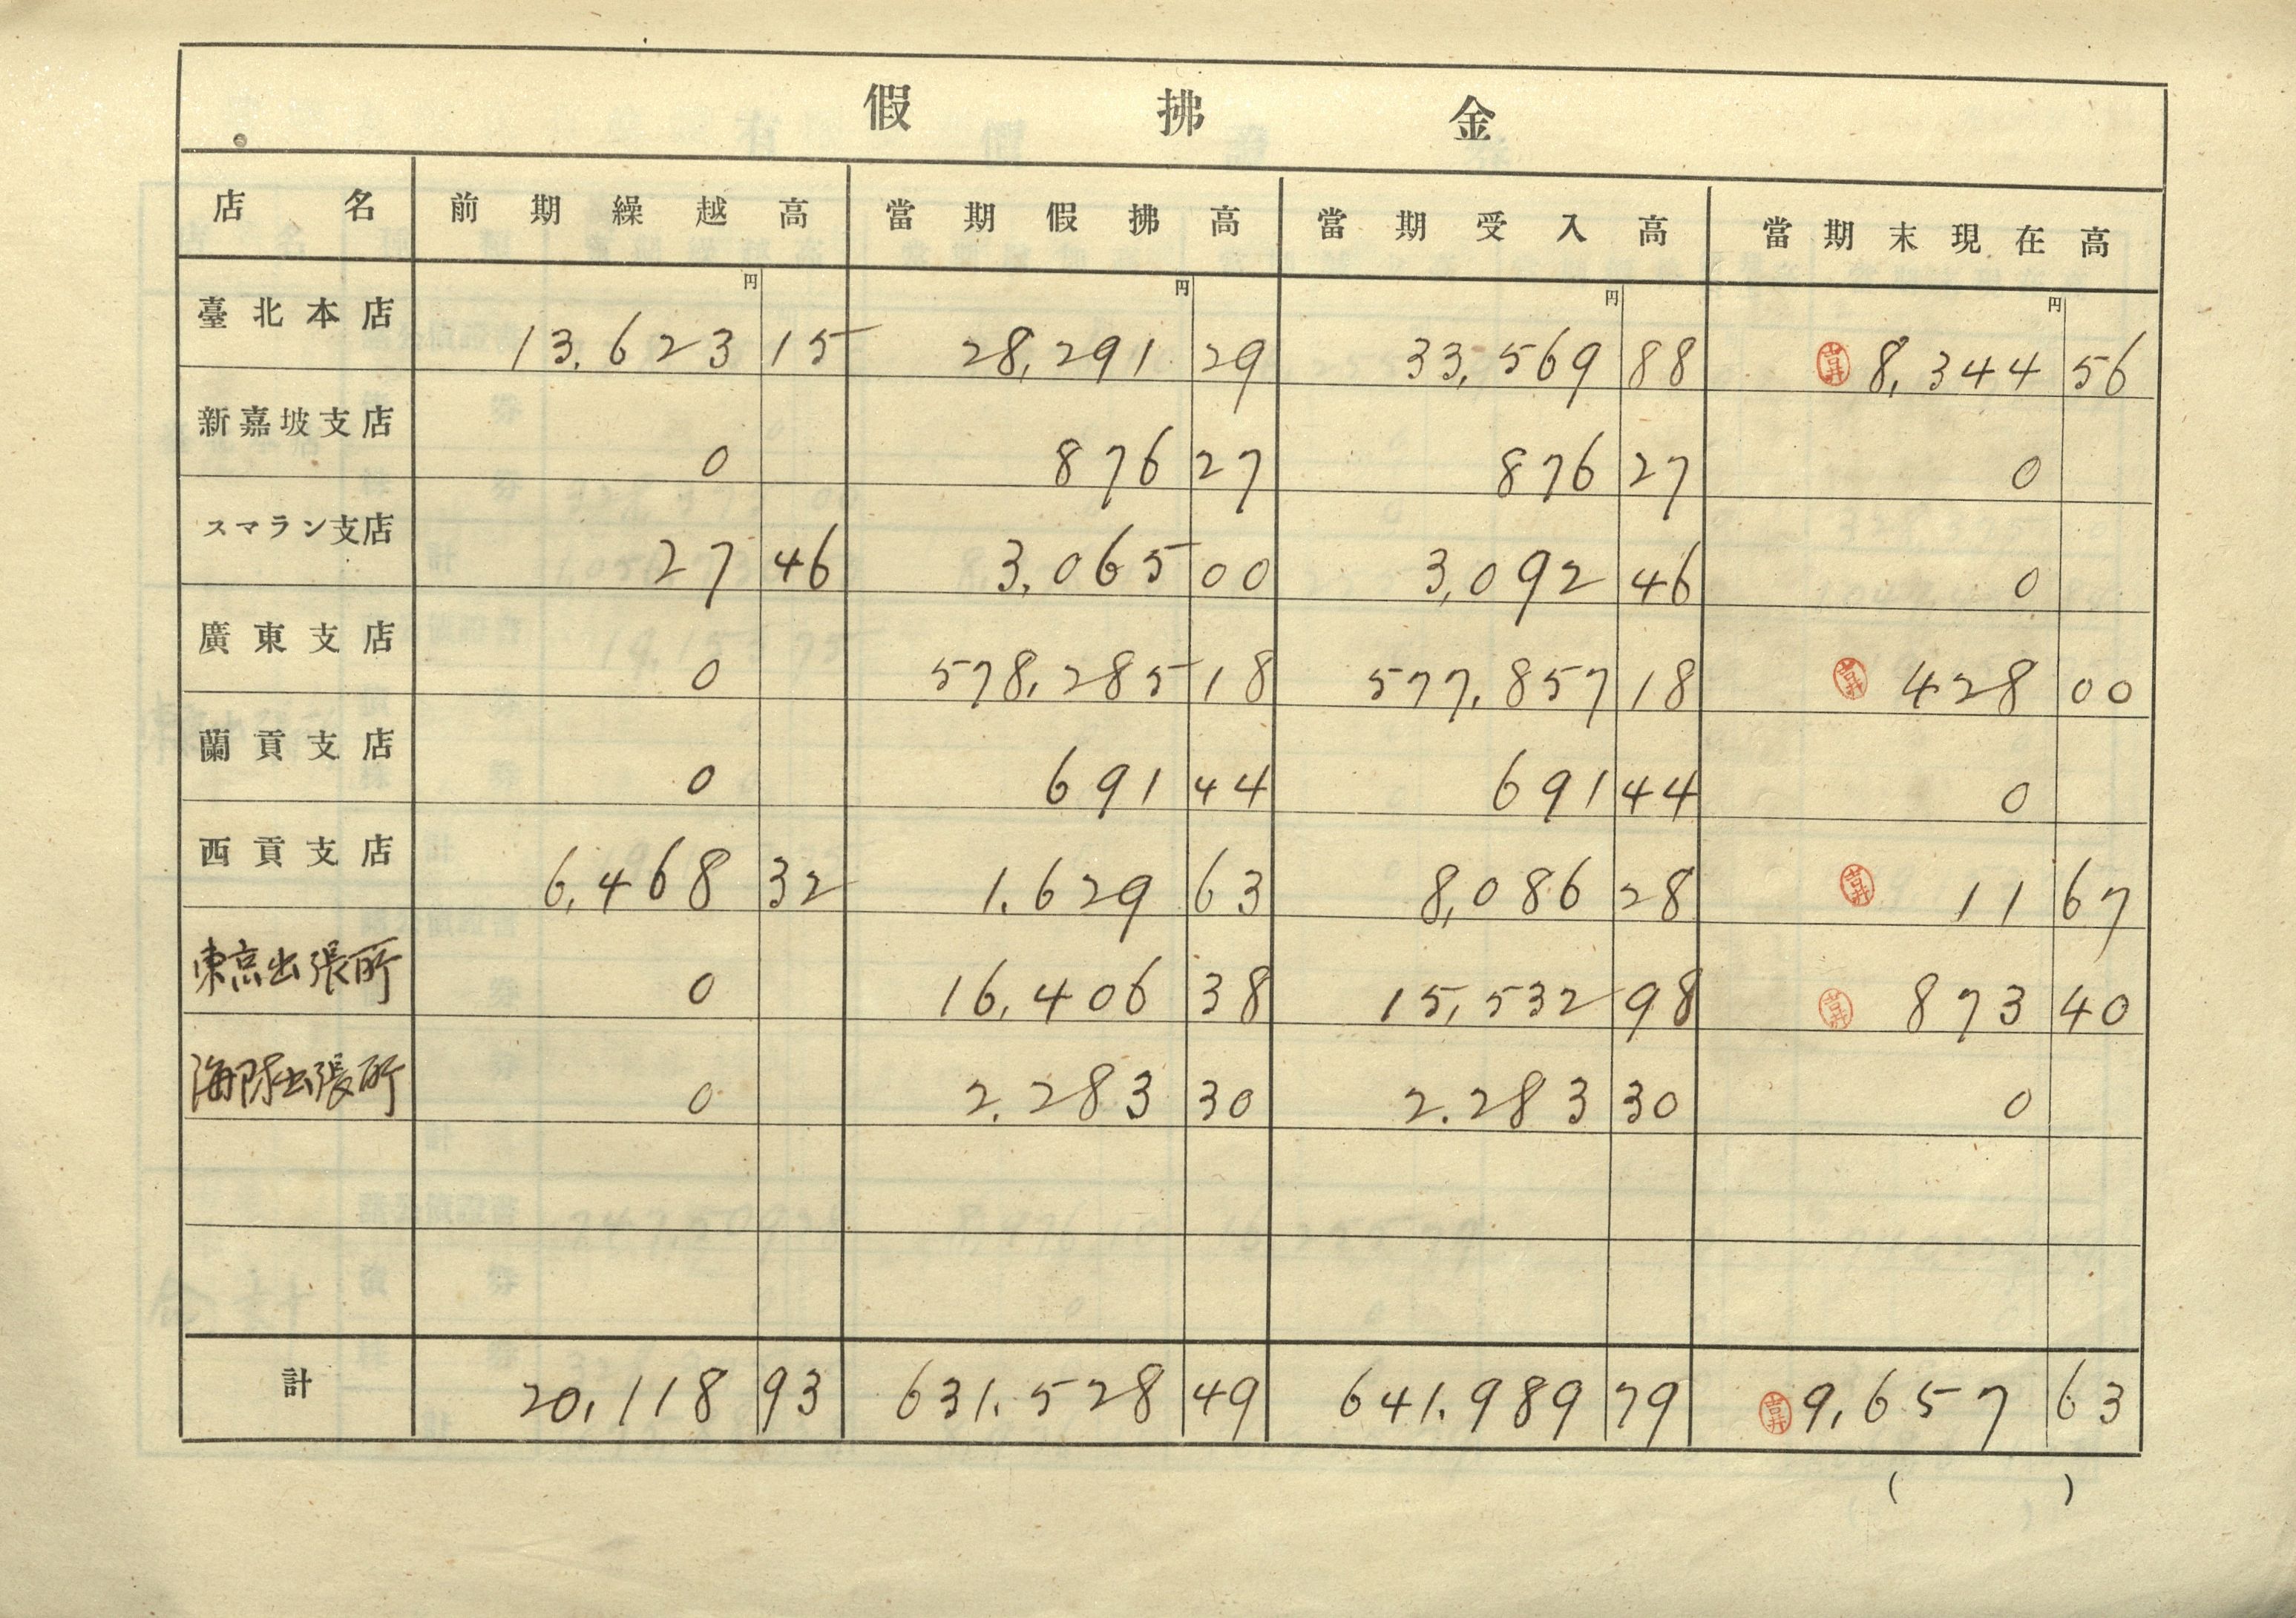 假拂金
店名 前期繰越高 當期假拂高 當期受入高 當期末現在高
円 円 円 円
臺北本店 13,623 15 28,291 29 33,569 88 吉井 8,344 56
新嘉坡支店 0 876 27 876 27 0
スマラン支店 27 46 3,065 00 3,092 46 0
廣東支店 0 578,285 18 577,857 18 吉井 428 00
蘭貢支店 0 691 44 691 44 0
西貢支店 6,468 32 1.629 63 8,086 28 吉井 11 67
東京出張所 0 16,406 38 15,532 98 吉井 873 40
海防出張所 0 2.283 30 2.283 30 0
計 20,118 93 631.528 49 641.989 79 吉井 9,657 63
( )